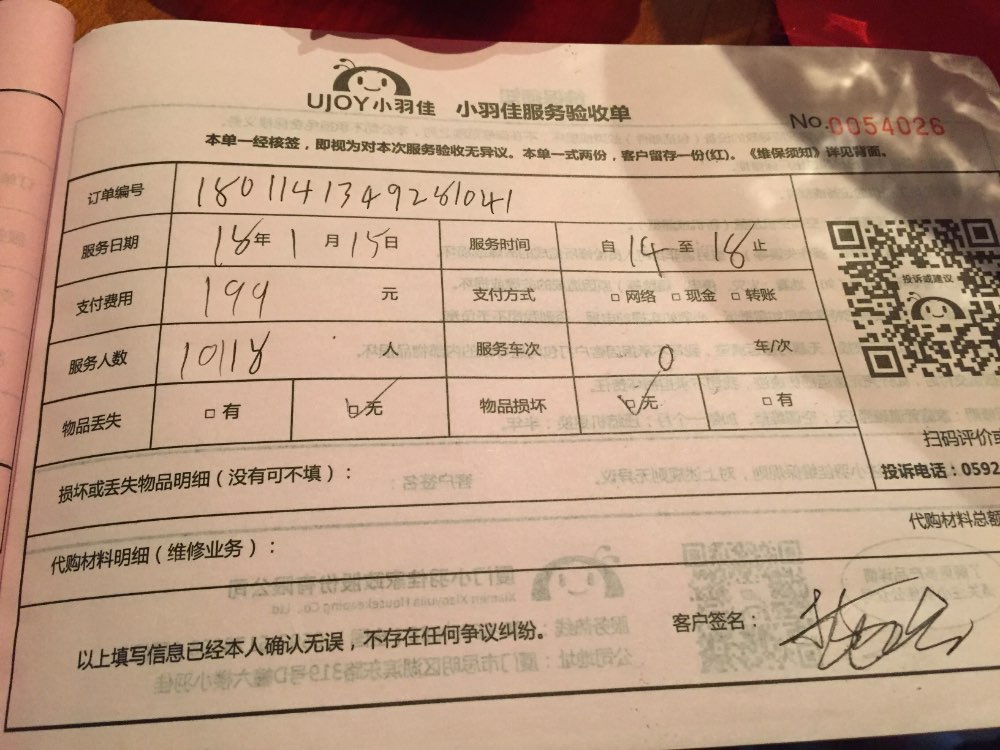 UJOY小羽佳 小羽佳服务验收单
No.0054026
本单一经核签，即视为对本次服务验收无异议。本单一式两份，客户留存一份(红)。《维保须知》详见背面。
订单编号 1801141349281041
服务日期 18年 1 月 15日 服务时间 自 14 至 18 止
投诉或建议
支付费用 199 元 支付方式 □ 网络 □ 现金 □ 转账
服务人数 10118 人 服务车次 0 车/次
物品丢失 □ 有 □ 无 物品损坏 □ 无 □ 有
扫码评价或
投诉电话：0592
损坏或丢失物品明细（没有可不填）：
代购材料总额
代购材料明细（维修业务）：
客户签名：
以上填写信息已经本人确认无误，不存在任何争议纠纷。